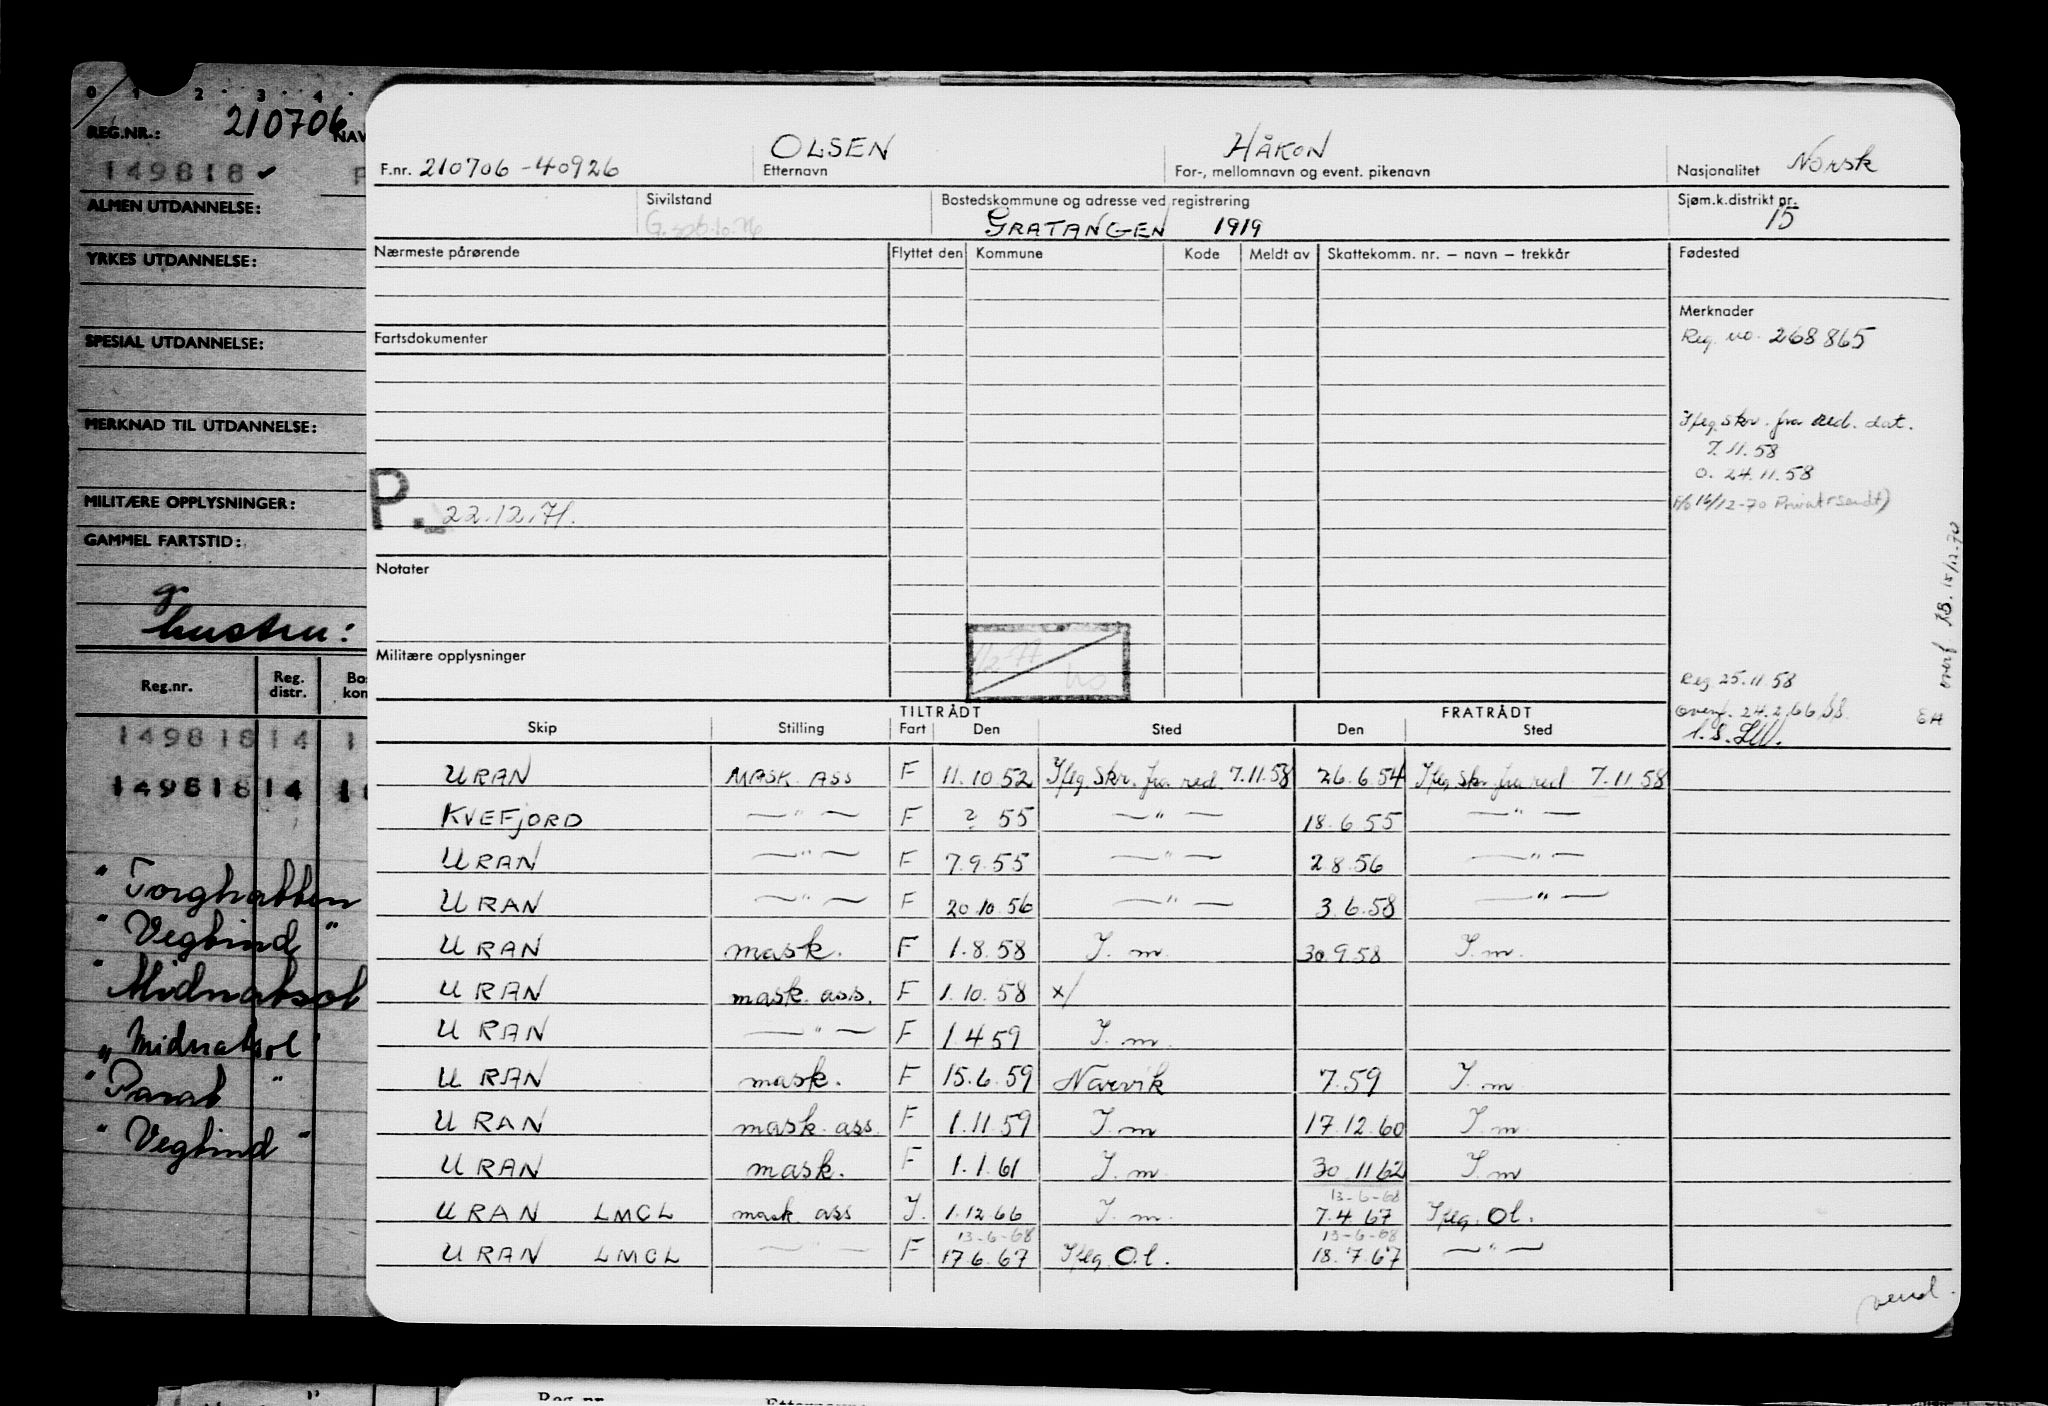 0 1 2 3 4
REG.NR.: 210706 NAV
149818 ✓
ALMEN UTDANNELSE:
YRKES UTDANNELSE:
SPESIAL UTDANNELSE:
MERKNAD TIL UTDANNELSE:
MILITÆRE OPPLYSNINGER:
GAMMEL FARTSTID:
g
hustru:
Reg.nr. Reg. distr. Bo kon
149818 14 1
149818 14 1
" Torghatten
" Vegtind "
" Midnatsol
" Midnatsol "
" Parat "
" Vegtind "
F.nr. 210706-40926 OLSEN Etternavn HÅKON For-, mellomnavn og event. pikenavn Nasjonalitet Norsk
Sivilstand Bostedskommune og adresse ved registrering Sjøm.k.distrikt nr.
GRATANGEN 1919 15
Nærmeste pårørende Flyttet den Kommune Kode Meldt av Skattekomm. nr. – navn – trekkår Fødested
Merknader
Reg. no. 268865
Fartsdokumenter
Iføg. skr. fra red. dat.
7.11.58
o. 24.11.58
16/12-70 Privat
P. 22.12.71.
Notater
Militære opplysninger
overf. 15/12-70
Reg 25.11 58
Overf. 24.2.66 EH
TILTRÅDT FRATRÅDT
Skip Stilling Fart Den Sted Den Sted
URAN MASK. ASS F 11.10 52 Iføg. skr. fra red. 7.11.58 26.6.54 Iføg. skr. fra red 7.11 58
KVEFJORD — " — F ? 55 — " — 18.6 55 — " —
URAN — " — F 7.9.55 — " — 2 8.56 — " —
URAN — " — F 20.10.56 — " — 3.6.58 — " —
URAN mask. F 1.8.58 I. m. 30.9.58 I. m.
URAN mask. ass. F 1.10.58 x/
URAN — " — F 1.4 59 I. m.
URAN mask. F 15.6.59 Narvik 7.59 I. m.
URAN mask. ass. F 1.11.59 I. m 17.12.60 I. m.
URAN mask. F 1.1.61 I. m. 30.11 62 I. m
13-6-68
URAN LMCL mask. ass I. 1.12.66 I. m. 7.4.67 Iføg. Ol.
13-6-68 13-6-68
URAN LMCL — " — F 17.6.67 Iføg. O.l. 18.7.67 — " —
vend.
Reg.nr. Etternavn